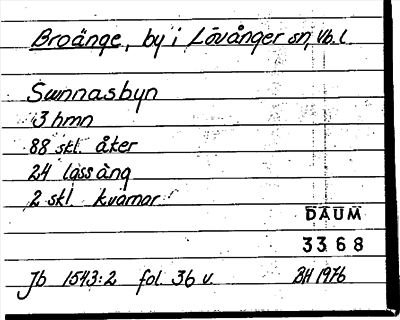 Broänge, by i Lövånger sn, Vb. l.
Sunnasbyn
3 hmn
88 skl. åker
24 lass äng
2 skl. kvarnar
DAUM
3368
Jb 1543:2 fol. 36 v. BH 1976